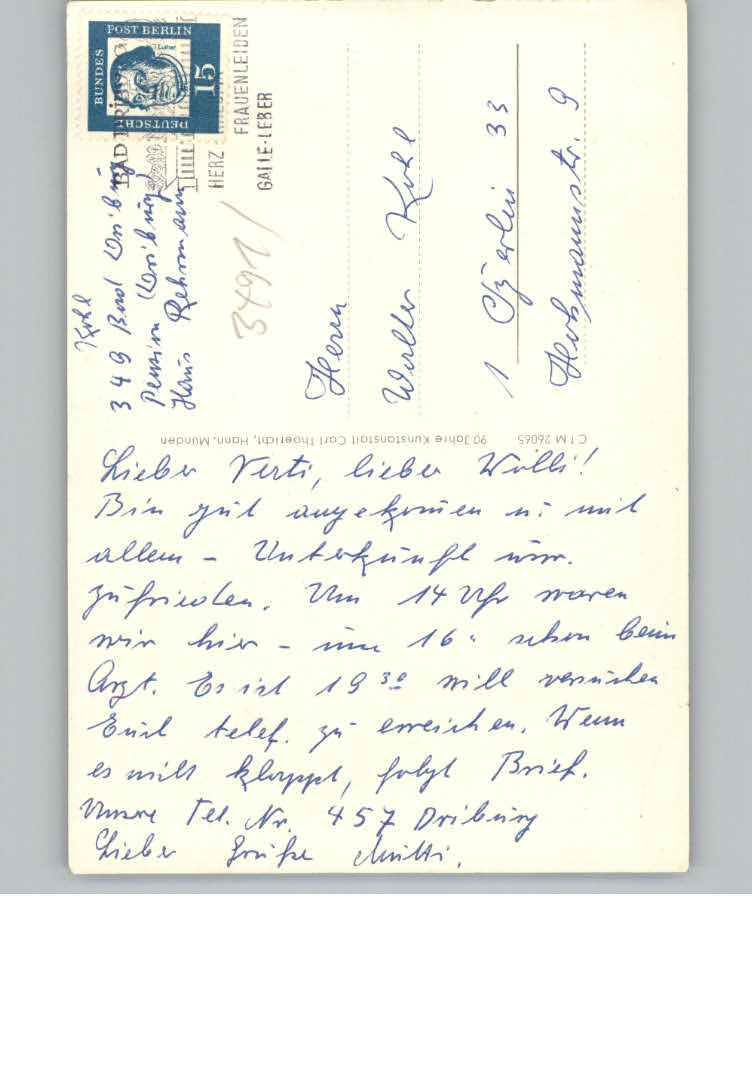 DEUTSCHE BUNDES POST BERLIN
15
Luther
BAD DRIBURG
HERZ
FRAUENLEIDEN
GALLE-LEBER
Kohl
349 Bad Driburg
Pension Driburg
Haus Rehrmann
3491/
Herrn
Walter Kohl
1 Berlin 33
Hohmannstr. 9
C T M 26065 90 Jahre Kunstanstalt Carl Thoericht, Hann. Münden
Lieber Verti, lieber Willi!
Bin gut angekommen u. mit
allem - Unterkunft usw.
zufrieden. Um 14 Uhr waren
wir hier - um 16 " schon beim
Arzt. Es ist 19 30 will versuchen
Euch telef. zu erreichen. Wenn
es nicht klappt, folgt Brief.
Unsere Tel. Nr. 457 Driburg
Lieber Grüße Mutti.